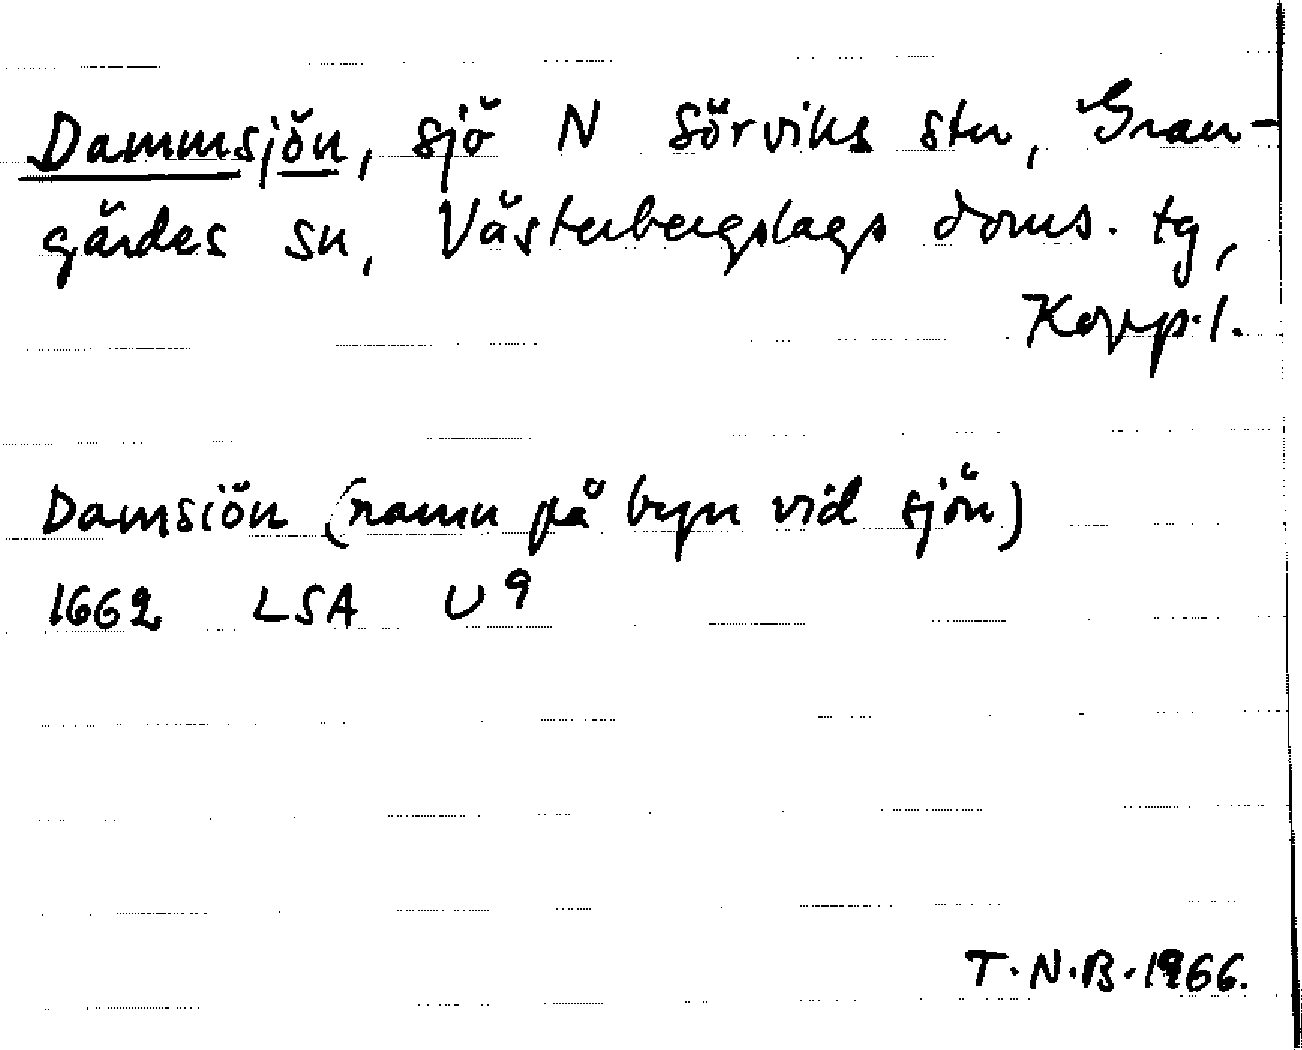 Dammsjön, sjö N Sörviks stn, Gran-
gärdes sn, Västerbergslags doms. tg,
Kopp. l.
Damsiön (namn på byn vid sjön)
1662 LSA U 9
T.N.B. 1966.